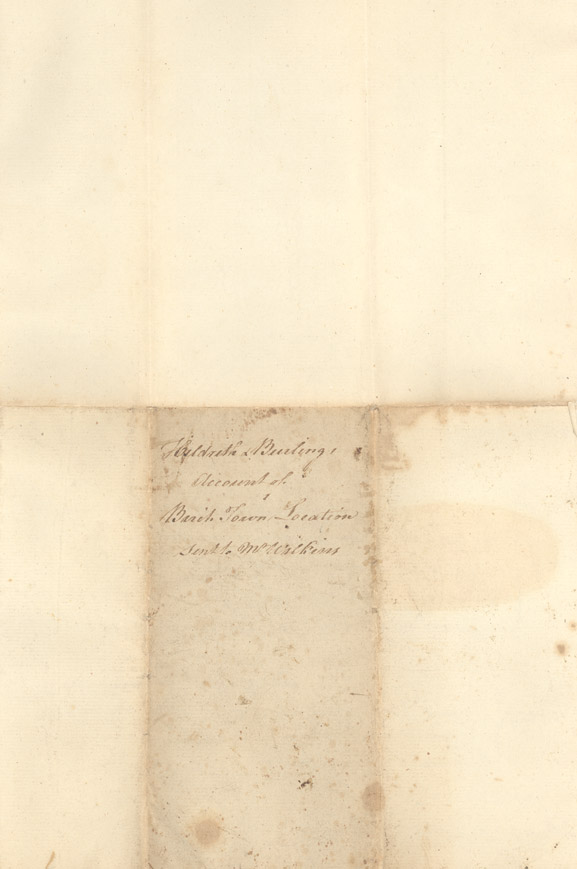 Hildreth & Burlings
Account of
Birch Town Location
sent to Mr Watkins